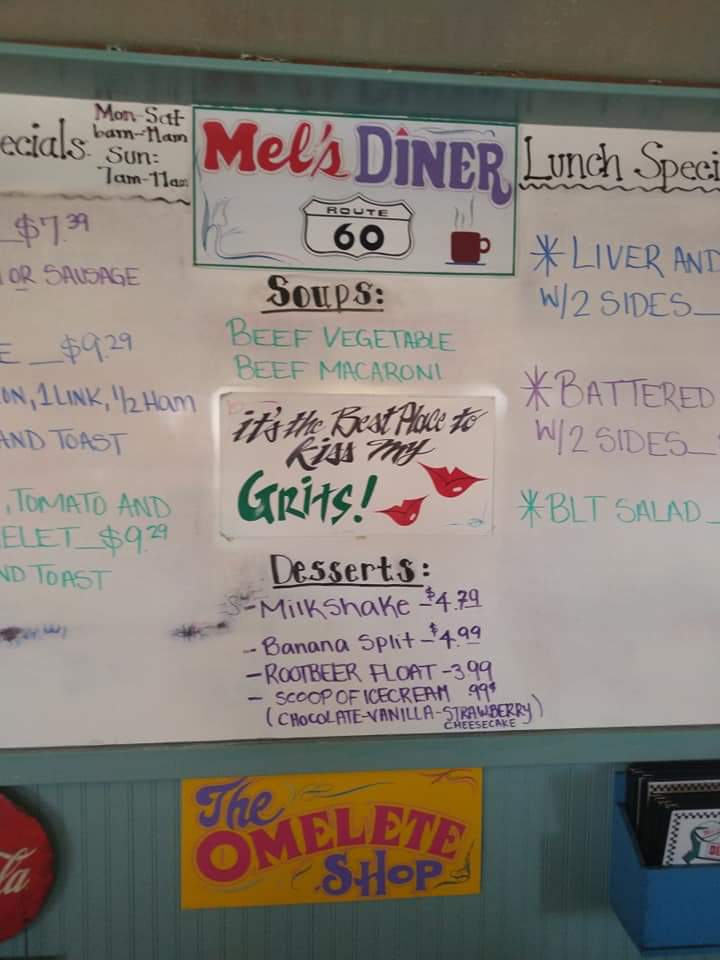 ecials
Mon-Sat
6am-11am
Sun:
7am-11am
$7.39
OR SAUSAGE
E $9.29
ON, 1 LINK, 1/2 Ham
AND TOAST
, TOMATO AND
ELET_$9.29
ND TOAST
Mel's DINER
ROUTE
60
Soups:
BEEF VEGETABLE
BEEF MACARONI
it's the Best Place to
kiss my
Grits!
Desserts:
-Milkshake -$4.79
-Banana Split -$4.99
-ROOTBEER FLOAT -3.99
- SCOOP OF ICECREAM .99¢
(CHOCOLATE-VANILLA-STRAWBERRY)
CHEESECAKE
Lunch Speci
*LIVER AND
W/2 SIDES_
*BATTERED
W/2 SIDES_
*BLT SALAD_
The
OMELETE
SHOP
la